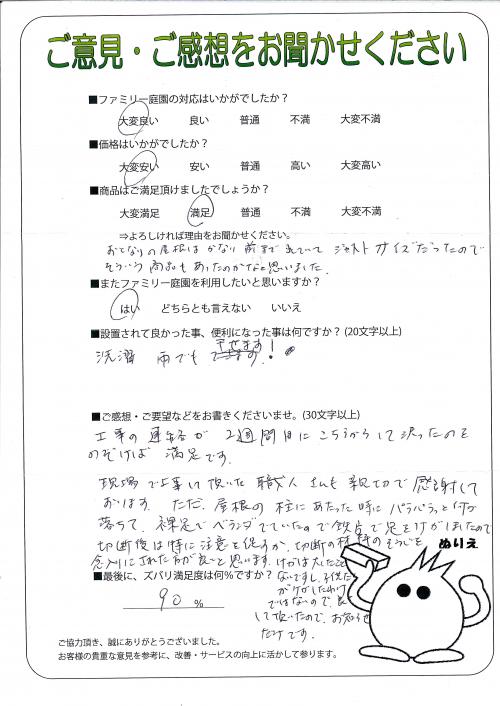 ご意見・ご感想をお聞かせください
■ファミリー庭園の対応はいかがでしたか？
大変良い 良い 普通 不満 大変不満
■価格はいかがでしたか？
大変安い 安い 普通 高い 大変高い
■商品はご満足頂けましたでしょうか？
大変満足 満足 普通 不満 大変不満
⇒よろしければ理由をお聞かせください。
おとなりの屋根はかなり前まで出ていて ジャストサイズだったので
そういう商品もあったのかなと思いました。
■またファミリー庭園を利用したいと思いますか？
はい どちらとも言えない いいえ
■設置されて良かった事、便利になった事は何ですか？(20文字以上)
洗濯 雨でも 干せます！
■ご感想・ご要望などをお書きくださいませ。(30文字以上)
工事の連絡が 2週間目にこちらからして決ったのを
のぞけば 満足です。
現場で工事して頂いた 職人さんも 親切で 感謝して
おります。ただ、屋根の柱にあたった時に パラパラっと
落ちて、裸足でベランダでていたので鉄点で足をけがしたので
切断後は特に注意を促すか、切断の材料のそうじを
念入りにされた方が良いと思います。けがは大したこと
ないですし、子供たち
がケガしたわけ
ではないので、良く
して頂いたので、お知らせ
だけです。
ぬりえ
■最後に、ズバリ満足度は何%ですか？
90 %
ご協力頂き、誠にありがとうございました。
お客様の貴重な意見を参考に、改善・サービスの向上に活かして参ります。